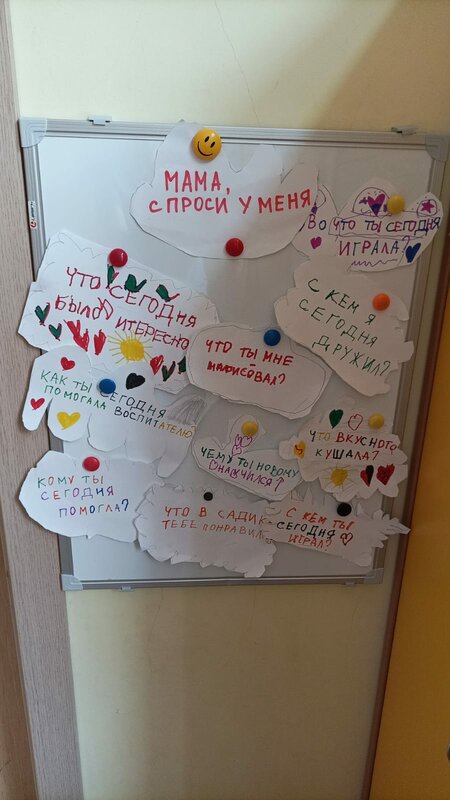 МАМА,
СПРОСИ У МЕНЯ
ВО ЧТО ТЫ СЕГОДНЯ
ИГРАЛА?
ЧТО СЕГОДНЯ
БЫЛО ИТЕРЕСНО
С КЕМ Я
СЕГОДНЯ
ДРУЖИЛ?
ЧТО ТЫ МНЕ
НАРИСОВАЛ?
КАК ТЫ СЕГОДНЯ
ПОМОГАЛА ВОСПИТАТЕЛЮ
ЧЕМУ ТЫ НОВОМУ
НАУЧИЛСЯ?
ЧТО ВКУСНОГО
КУШАЛА?
КОМУ ТЫ
СЕГОДНЯ
ПОМОГЛА?
ЧТО В САДИК
ТЕБЕ ПОНРАВИЛ
С КЕМ ТЫ
СЕГОДНЯ
ИГРАЛ?